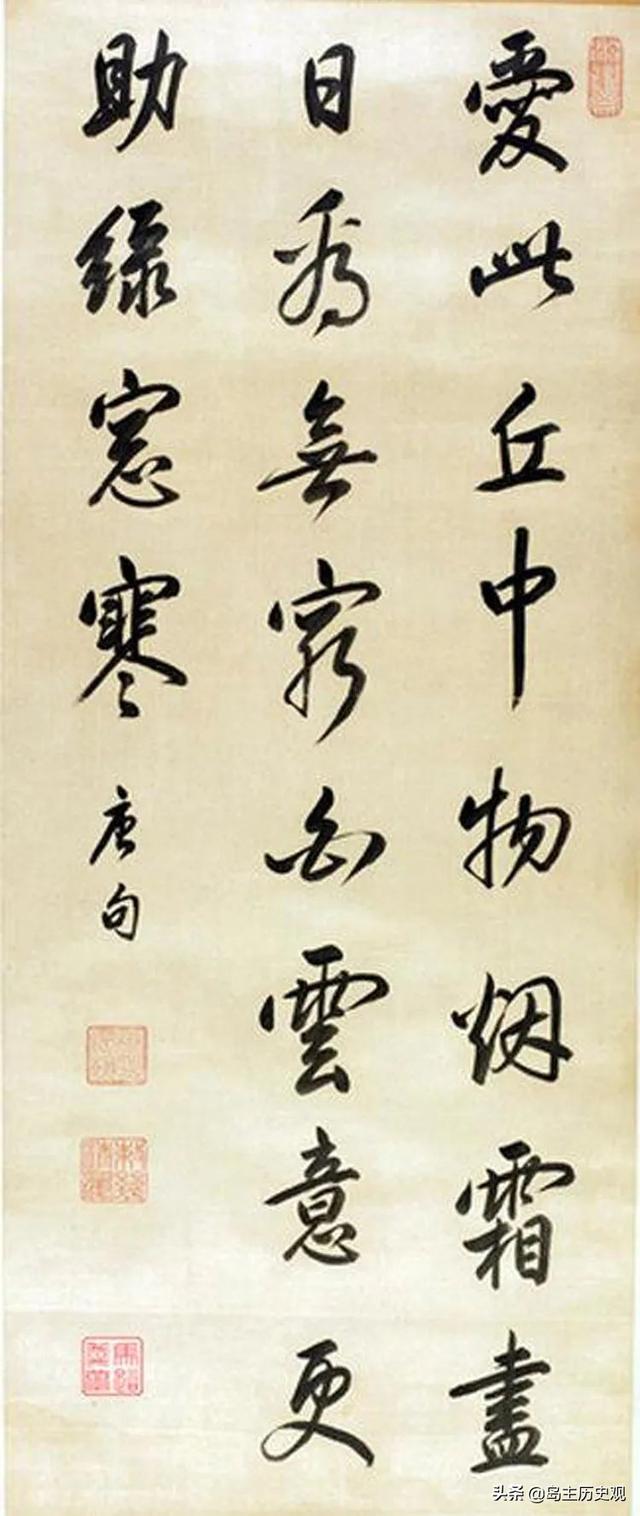 愛此丘中物烟霜盡
日看無窮白雲意更
助綠窓寒 唐句
头条 @岛主历史观